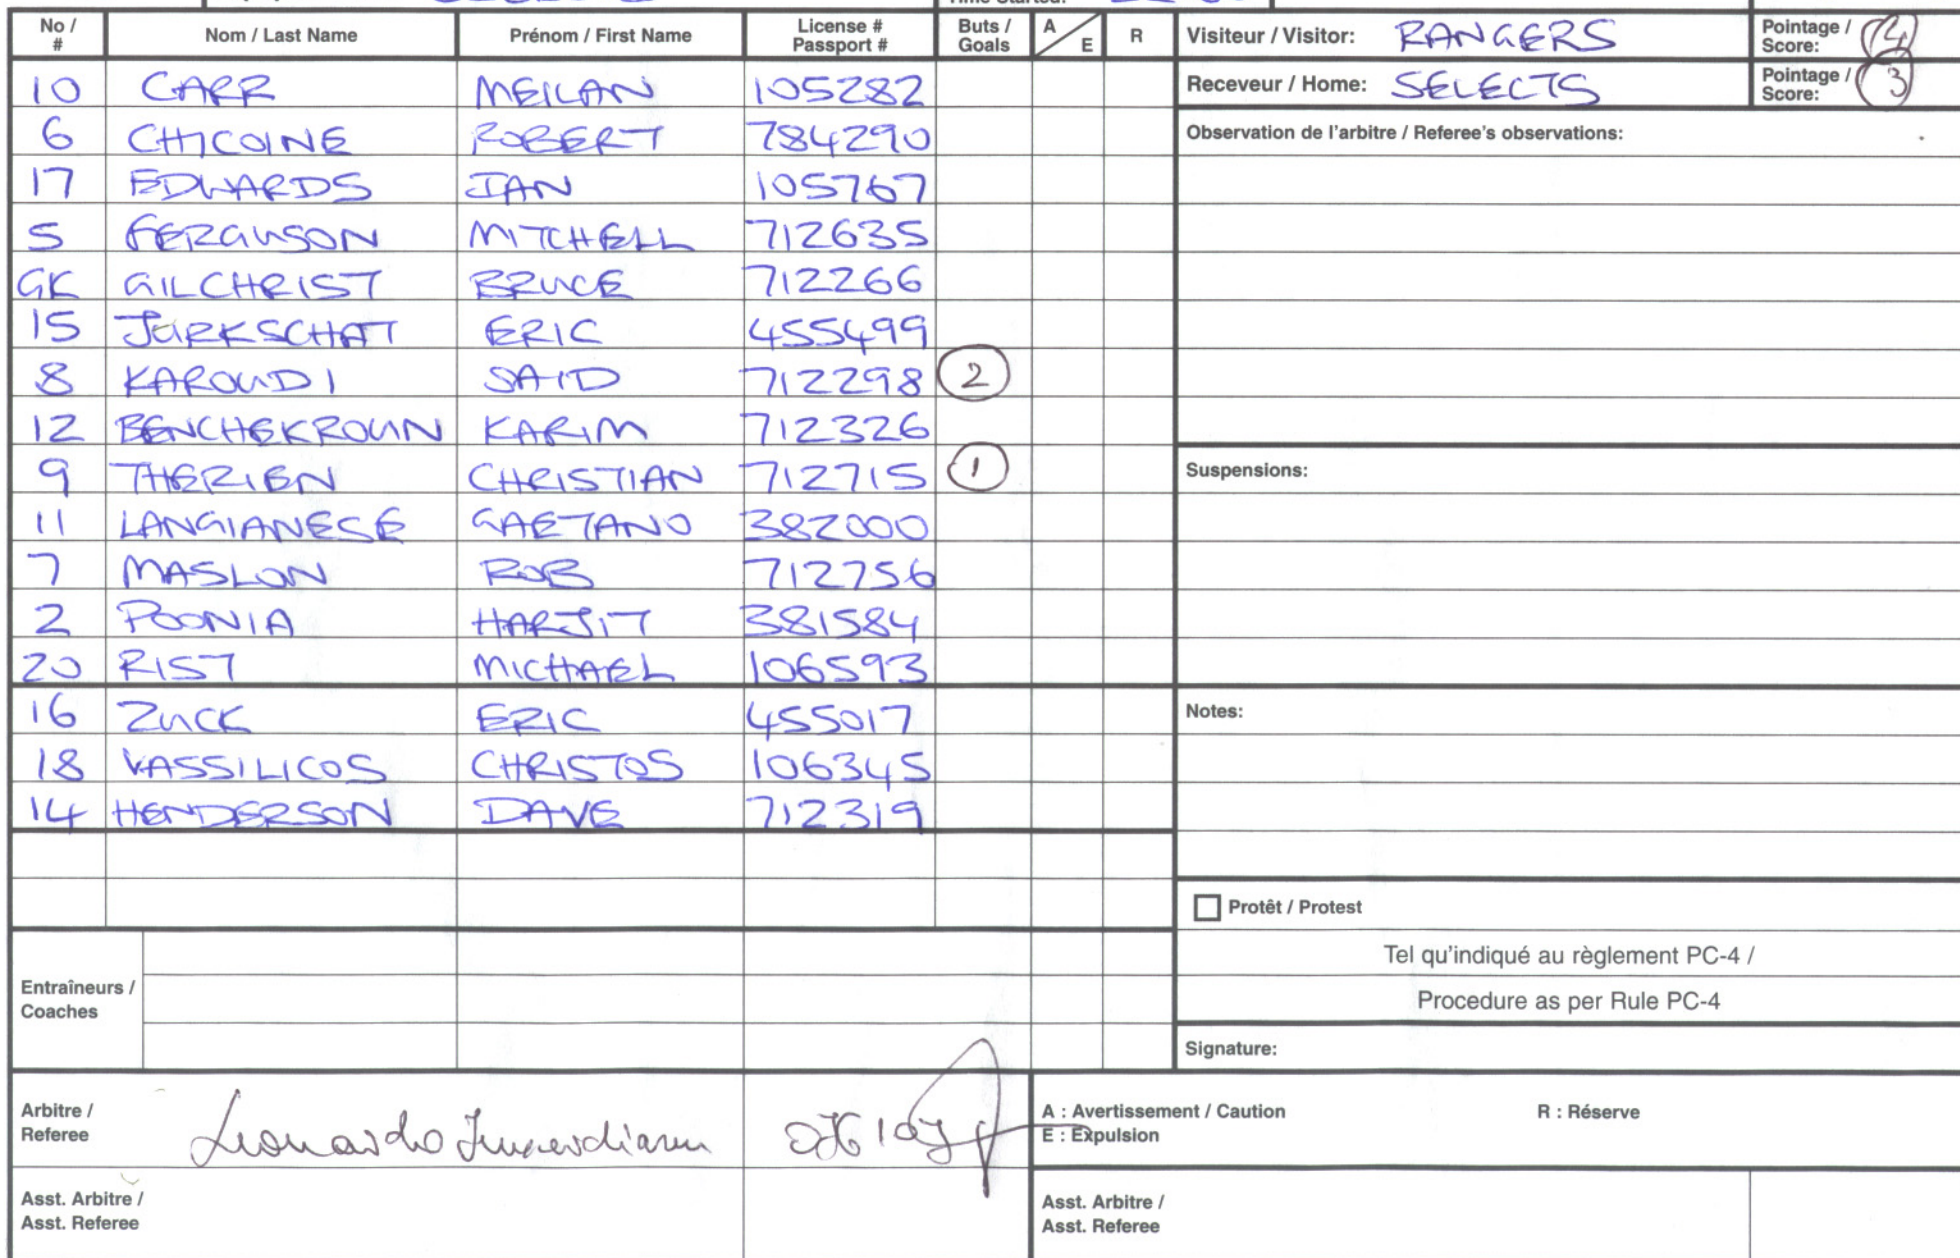 No / # Nom / Last Name Prénom / First Name License # Passport # Buts / Goals A / E R
10 CARR MEILAN 105282
6 CHICOINE ROBERT 784290
17 EDWARDS IAN 105767
5 FERGUSON MITCHELL 712635
GK GILCHRIST BRUCE 712266
15 JURKSCHAT ERIC 455499
8 KAROUDI SAID 712298 2
12 BENCHEKROUN KARIM 712326
9 THERIEN CHRISTIAN 712715 1
11 LANGIANESE GAETANO 382000
7 MASLON ROB 712756
2 POONIA HARJIT 381584
20 RIST MICHAEL 106593
16 ZUCK ERIC 455017
18 VASSILICOS CHRISTOS 106345
14 HENDERSON DAVE 712319
Entraîneurs / Coaches
Visiteur / Visitor: RANGERS Pointage / Score:
Receveur / Home: SELECTS Pointage / Score: 3
Observation de l'arbitre / Referee's observations:
Suspensions:
Notes:
Protêt / Protest
Tel qu'indiqué au règlement PC-4 /
Procedure as per Rule PC-4
Signature:
Arbitre / Referee Leonardo
A : Avertissement / Caution R : Réserve
E : Expulsion
Asst. Arbitre / Asst. Referee
Asst. Arbitre / Asst. Referee